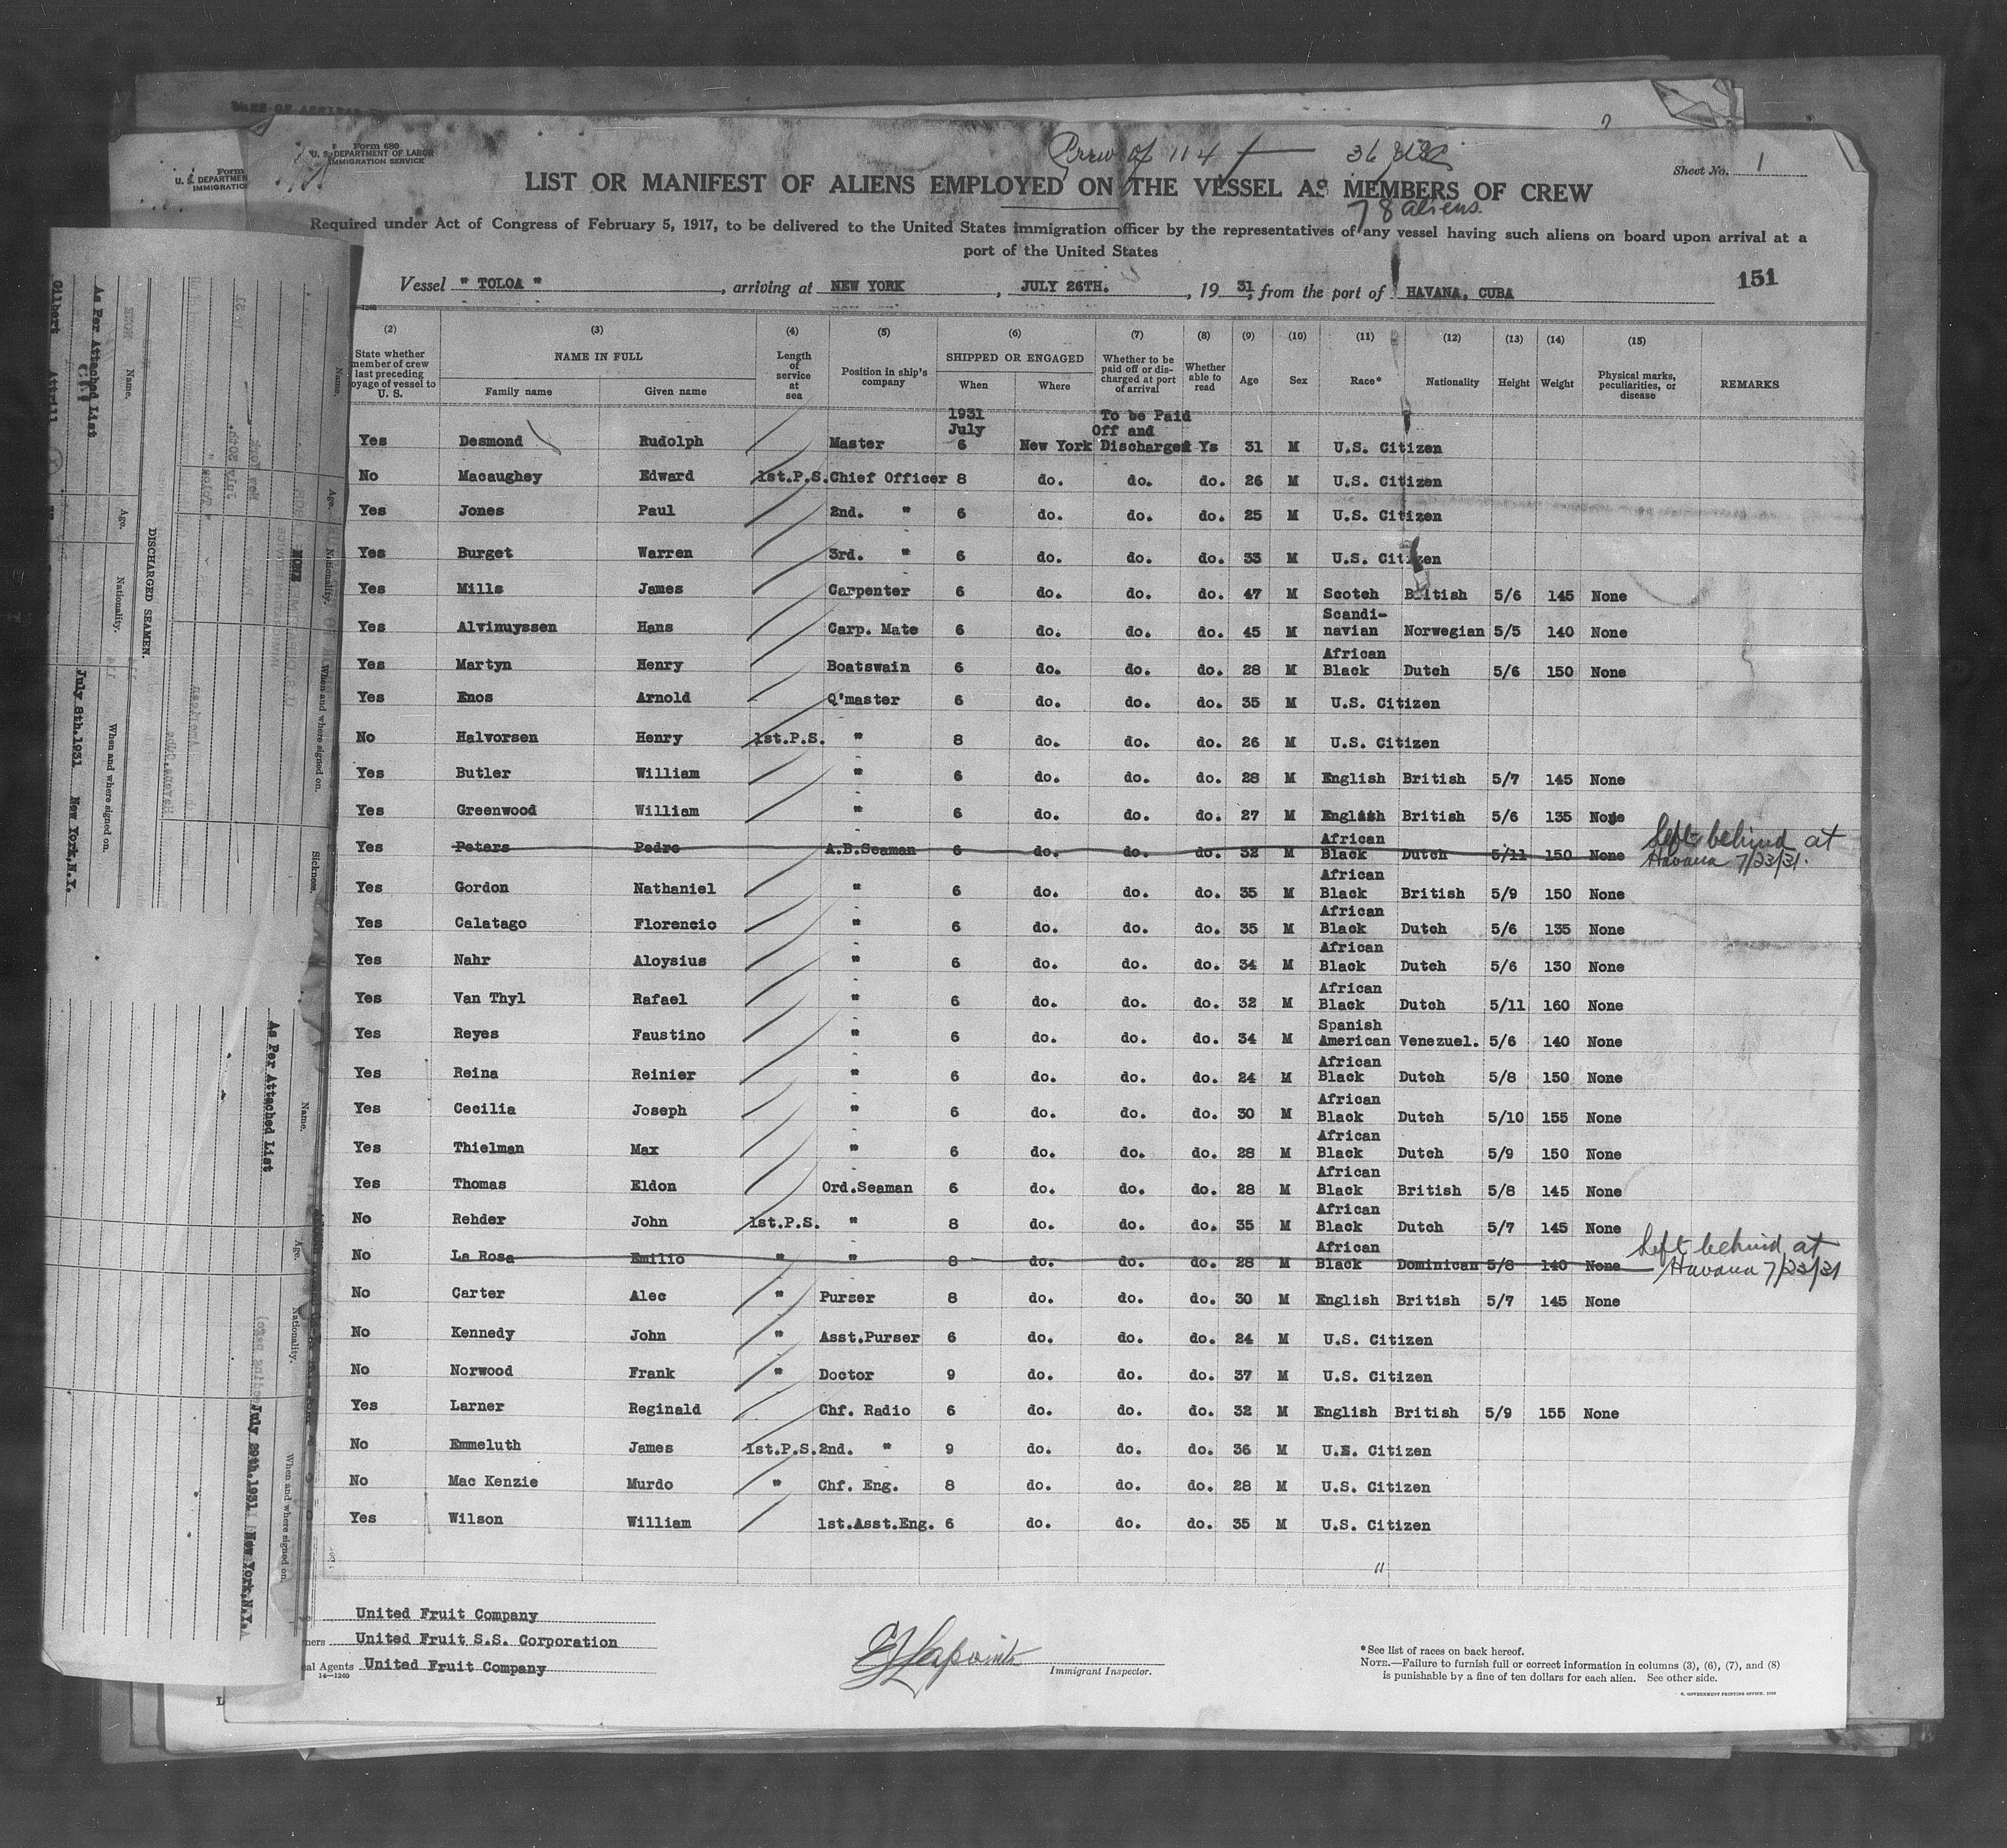 Form 680
U. S. DEPARTMENT OF LABOR
IMMIGRATION SERVICE
Crew of 114 36 USC
78 aliens
Sheet No. 1
LIST OR MANIFEST OF ALIENS EMPLOYED ON THE VESSEL AS MEMBERS OF CREW
Required under Act of Congress of February 5, 1917, to be delivered to the United States immigration officer by the representatives of any vessel having such aliens on board upon arrival at a
port of the United States
151
Vessel " TOLOA " , arriving at NEW YORK , JULY 26TH. , 19 31, from the port of HAVANA, CUBA
(2) (3) (4) (5) (6) (7) (8) (9) (10) (11) (12) (13) (14) (15)
State whether member of crew last preceding voyage of vessel to U. S. NAME IN FULL Family name Given name Length of service at sea Position in ship's company SHIPPED OR ENGAGED When Where Whether to be paid off or discharged at port of arrival Whether able to read Age Sex Race* Nationality Height Weight Physical marks, peculiarities, or disease REMARKS
1931 July To be Paid Off and
Yes Desmond Rudolph Master 6 New York Discharged Ys 31 M U.S. Citizen
No Macaughey Edward 1st.P.S. Chief Officer 8 do. do. do. 26 M U.S. Citizen
Yes Jones Paul 2nd. " 6 do. do. do. 25 M U.S. Citizen
Yes Burget Warren 3rd. " 6 do. do. do. 33 M U.S. Citizen
Yes Mills James Carpenter 6 do. do. do. 47 M Scotch British 5/6 145 None
Yes Alvinuyssen Hans Carp. Mate 6 do. do. do. 45 M Scandi-navian Norwegian 5/5 140 None
Yes Martyn Henry Boatswain 6 do. do. do. 28 M African Black Dutch 5/6 150 None
Yes Enos Arnold Q'master 6 do. do. do. 35 M U.S. Citizen
No Halvorsen Henry 1st.P.S. " 8 do. do. do. 26 M U.S. Citizen
Yes Butler William " 6 do. do. do. 28 M English British 5/7 145 None
Yes Greenwood William " 6 do. do. do. 27 M English British 5/6 135 None
Yes Peters Pedro A.B.Seaman 6 do. do. do. 32 M African Black Dutch 5/11 150 None Left behind at Havana 7/23/31.
Yes Gordon Nathaniel " 6 do. do. do. 35 M African Black British 5/9 150 None
Yes Calatago Florencio " 6 do. do. do. 35 M African Black Dutch 5/6 135 None
Yes Nahr Aloysius " 6 do. do. do. 34 M African Black Dutch 5/6 130 None
Yes Van Thyl Rafael " 6 do. do. do. 32 M African Black Dutch 5/11 160 None
Yes Reyes Faustino " 6 do. do. do. 34 M Spanish American Venezuel. 5/6 140 None
Yes Reina Reinier " 6 do. do. do. 24 M African Black Dutch 5/8 150 None
Yes Cecilia Joseph " 6 do. do. do. 30 M African Black Dutch 5/10 155 None
Yes Thielman Max " 6 do. do. do. 28 M African Black Dutch 5/9 150 None
Yes Thomas Eldon Ord.Seaman 6 do. do. do. 28 M African Black British 5/8 145 None
No Rehder John 1st.P.S. " 8 do. do. do. 35 M African Black Dutch 5/7 145 None
No La Rosa Emilio " " 8 do. do. do. 28 M African Black Dominican 5/8 140 None Left behind at Havana 7/23/31
No Carter Alec " Purser 8 do. do. do. 30 M English British 5/7 145 None
No Kennedy John " Asst.Purser 6 do. do. do. 24 M U.S. Citizen
No Norwood Frank " Doctor 9 do. do. do. 37 M U.S. Citizen
Yes Larner Reginald Chf. Radio 6 do. do. do. 32 M English British 5/9 155 None
No Emmeluth James 1st.P.S. 2nd. " 9 do. do. do. 36 M U.S. Citizen
No Mac Kenzie Murdo " Chf. Eng. 8 do. do. do. 28 M U.S. Citizen
Yes Wilson William 1st.Asst.Eng. 6 do. do. do. 35 M U.S. Citizen
United Fruit Company
United Fruit S.S. Corporation
Agents United Fruit Company
14—1240
Immigrant Inspector.
*See list of races on back hereof.
NOTE.—Failure to furnish full or correct information in columns (3), (6), (7), and (8)
is punishable by a fine of ten dollars for each alien. See other side.
As Per Attached List
DISCHARGED SEAMEN.
Name. Age. Nationality. When and where signed on.
July 8th.1931 New York,N.Y.
As Per Attached List
Name. Age. Nationality. When and where signed on.
July 29th.1931 New York,N.Y.